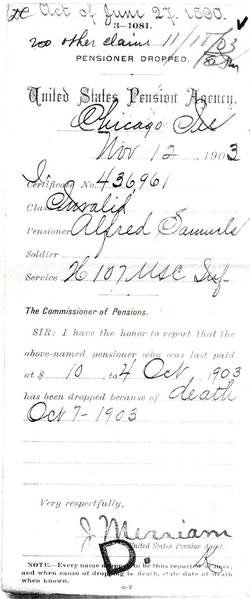 Act of June 27. 1890.
3—1081.
no other claim 11/18/03
PENSIONER DROPPED.
United States Pension Agency,
Chicago Ill
Nov 12 1903
Certificate No. 436,961
Class Invalid
Pensioner Alfred Samuels
Soldier
Service H 107 USC Inf
The Commissioner of Pensions.
SIR: I have the honor to report that the
above-named pensioner who was last paid
at $ 10, to 4 Oct, 1903
has been dropped because of death
Oct 7 - 1903
Very respectfully,
J Merriam
United States Pension Agent.
D.
NOTE.—Every name dropped to be thus reported at once,
and when cause of dropping is death, state date of death
when known.